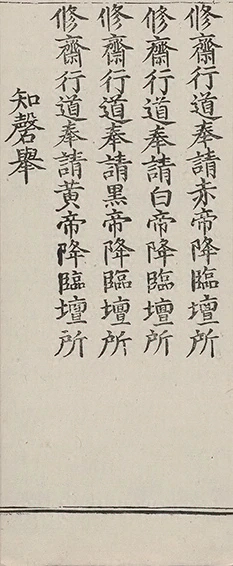 修齋行道奉請赤帝降臨壇所
修齋行道奉請白帝降臨壇所
修齋行道奉請黑帝降臨壇所
修齋行道奉請黃帝降臨壇所
知磬舉